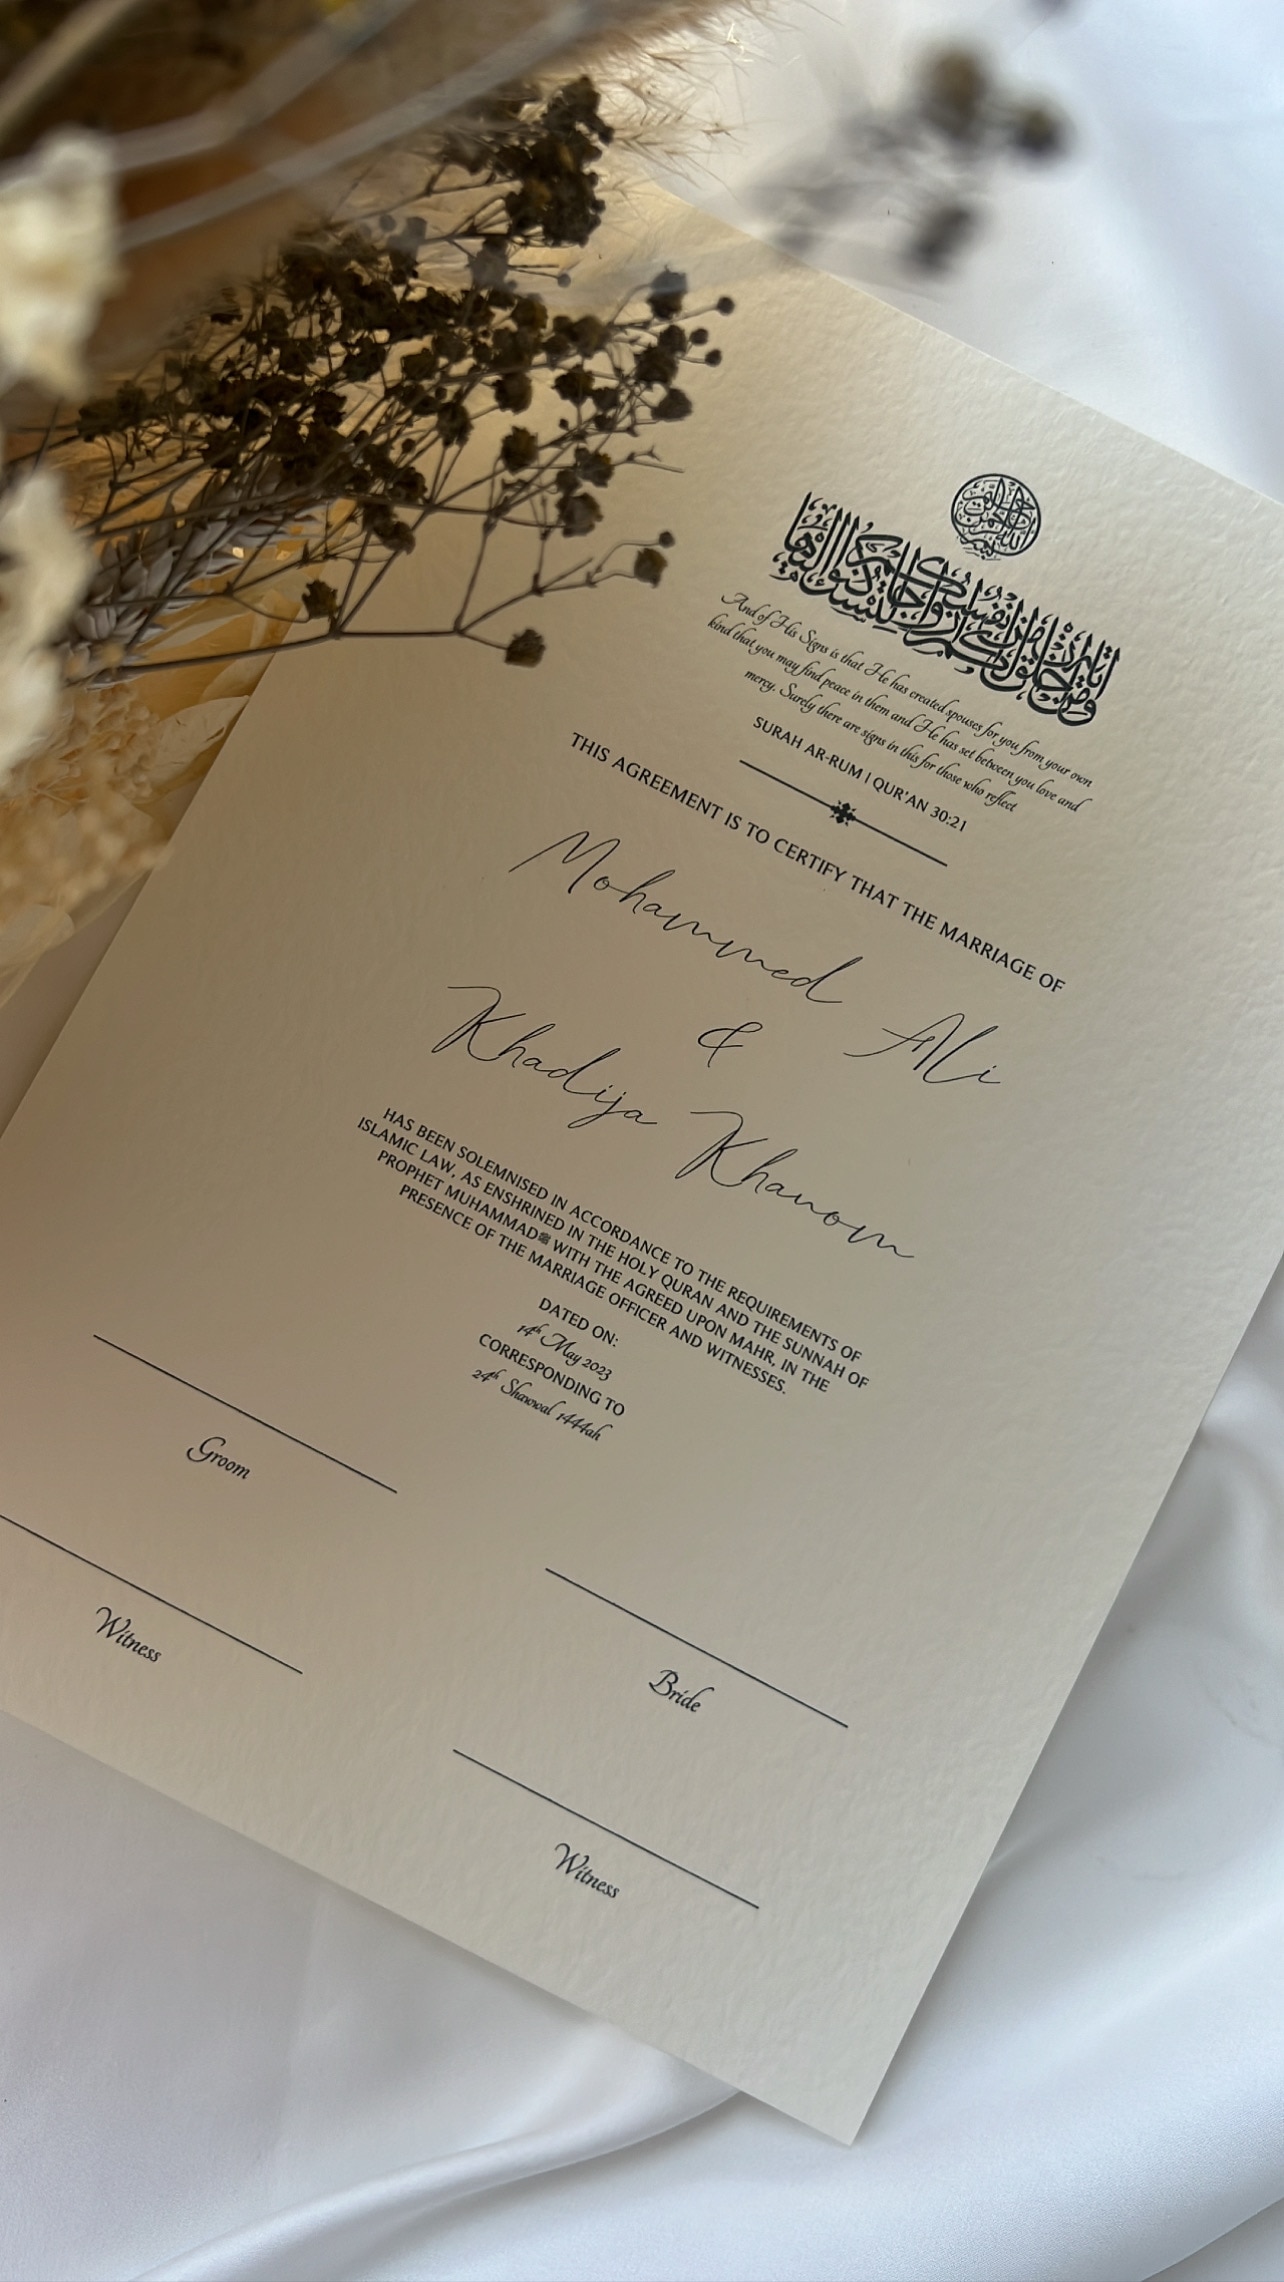 بسم الله الرحمن الرحيم
ومن آياته أن خلق لكم من أنفسكم أزواجا لتسكنوا إليها
And of His Signs is that He has created spouses for you from your own
kind that you may find peace in them and He has set between you love and
mercy. Surely there are signs in this for those who reflect
SURAH AR-RUM | QUR'AN 30:21
THIS AGREEMENT IS TO CERTIFY THAT THE MARRIAGE OF
Mohammed Ali
&
Khadija Khanom
HAS BEEN SOLEMNISED IN ACCORDANCE TO THE REQUIREMENTS OF
ISLAMIC LAW, AS ENSHRINED IN THE HOLY QURAN AND THE SUNNAH OF
PROPHET MUHAMMADﷺ WITH THE AGREED UPON MAHR, IN THE
PRESENCE OF THE MARRIAGE OFFICER AND WITNESSES.
DATED ON:
14th May 2023
CORRESPONDING TO
24th Shawwal 1444ah
Groom
Bride
Witness
Witness